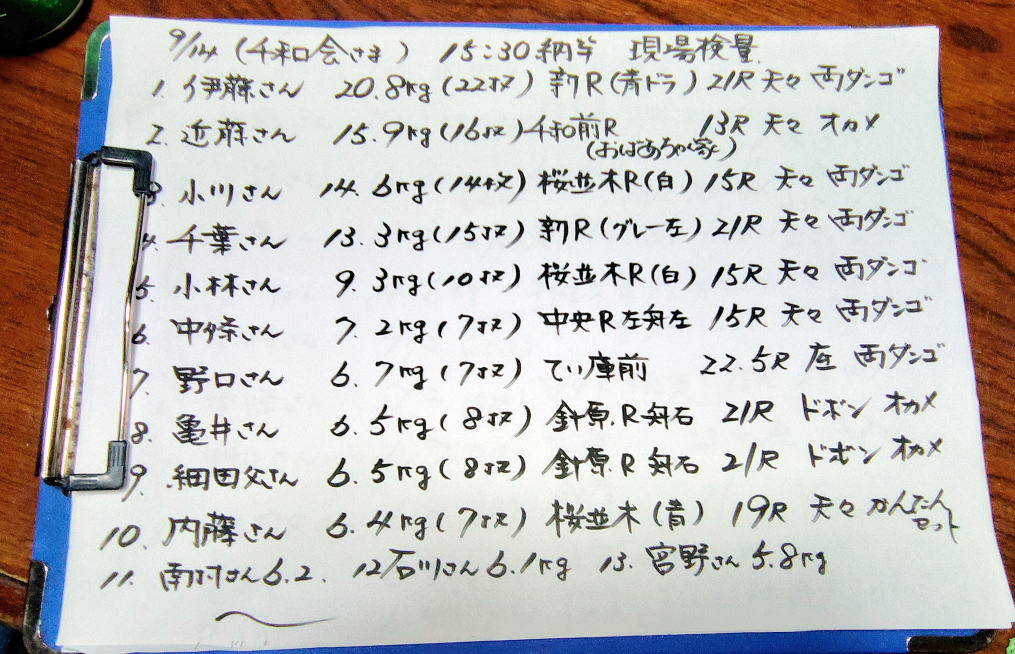 9/14 (千和会さま) 15:30納竿 現場検量
1. 伊藤さん 20.8kg(22枚) 新R(青ドラ) 21R 天々 両ダンゴ
2. 近藤さん 15.9kg(16枚) 千和前R 13R 天々 オカメ
(おばあちゃん家)
3. 小川さん 14.6kg(14枚) 桜並木R(白) 15R 天々 両ダンゴ
4. 千葉さん 13.3kg(15枚) 新R(グレー左) 21R 天々 両ダンゴ
5. 小林さん 9.3kg(10枚) 桜並木R(白) 15R 天々 両ダンゴ
6. 中條さん 7.2kg(7枚) 中央R左舟左 15R 天々 両ダンゴ
7. 野口さん 6.7kg(7枚) てい庫前 22.5R 底 両ダンゴ
8. 亀井さん 6.5kg(8枚) 針原R舟石 21R ドボン オカメ
9. 細田父さん 6.5kg(8枚) 針原R舟石 21R ドボン オカメ
10. 内藤さん 6.4kg(7枚) 桜並木(青) 19R 天々 かんたん
セット
11. 南村さん6.2. 12石川さん6.1kg 13. 宮野さん5.8kg